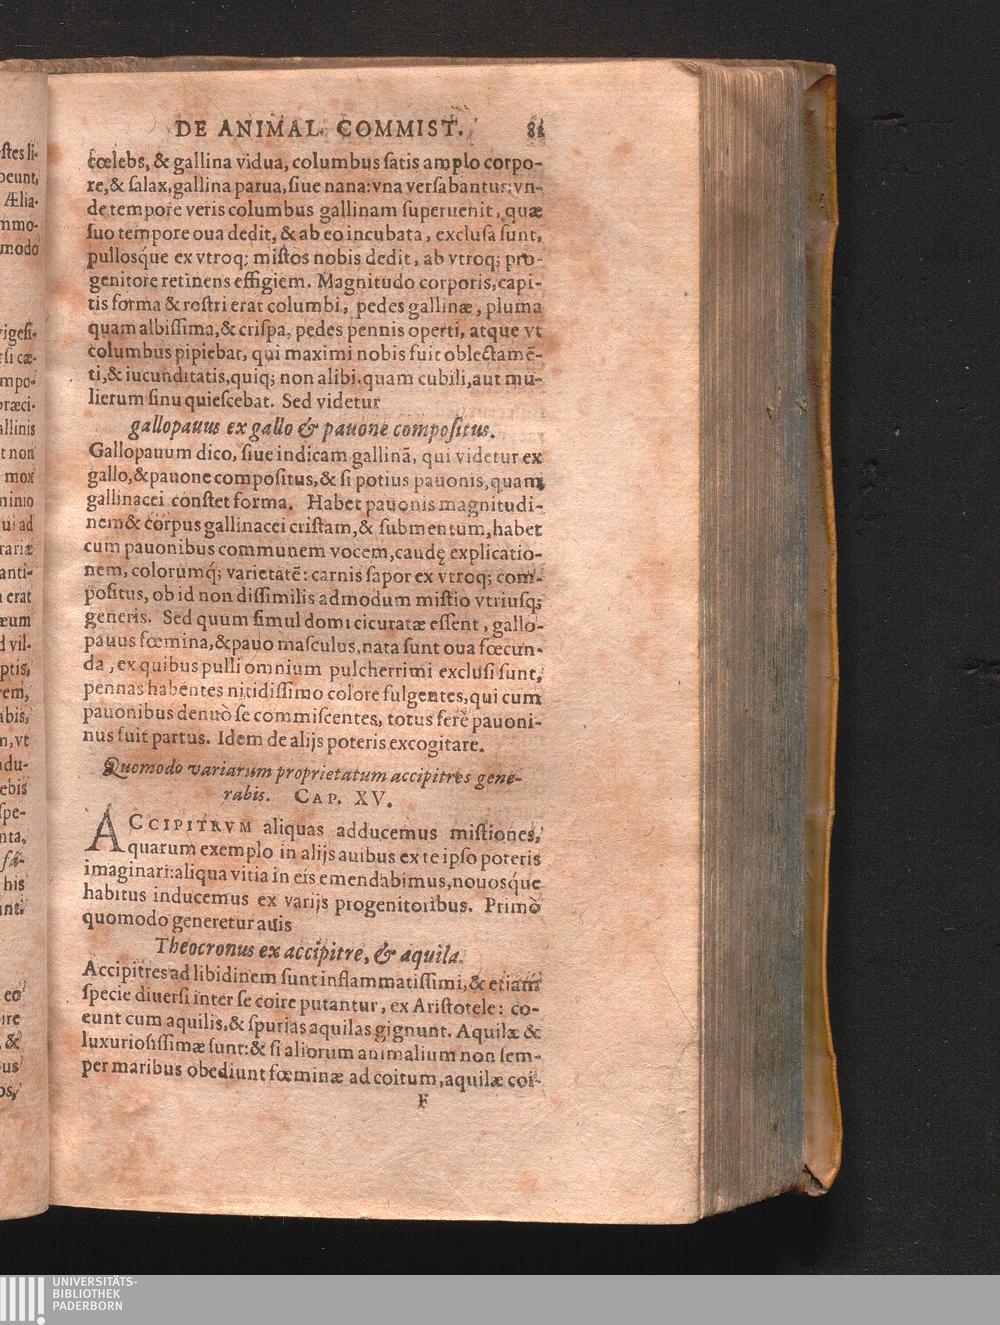 DE ANIMAL. COMMIST. 81
cœlebs, & gallina vidua, columbus ſatis amplo corpo-
re, & ſalax, gallina parua, ſiue nana: vna verſabantur: vn-
de tempore veris columbus gallinam ſuperuenit, quæ
ſuo tempore oua dedit, & ab eo incubata, excluſa ſunt,
pulloſq́ue ex vtroq; miſtos nobis dedit, ab vtroq; pro-
genitore retinens effigiem. Magnitudo corporis, capi-
tis forma & roſtri erat columbi, pedes gallinæ, pluma
quam albiſſima, & criſpa, pedes pennis operti, atque vt
columbus pipiebat, qui maximi nobis fuit oblectamē-
ti, & iucunditatis, quiq; non alibi, quam cubili, aut mu-
lierum ſinu quieſcebat. Sed videtur
gallopauus ex gallo & pauone compoſitus.
Gallopauum dico, ſiue indicam gallinā, qui videtur ex
gallo, & pauone compoſitus, & ſi potius pauonis, quam
gallinacei conſtet forma. Habet pauonis magnitudi-
nem & corpus gallinacei criſtam, & ſubmentum, habet
cum pauonibus communem vocem, caudę explicatio-
nem, colorumq́; varietatē: carnis ſapor ex vtroq; com-
poſitus, ob id non diſſimilis admodum miſtio vtriuſq;
generis. Sed quum ſimul domi cicuratæ eſſent, gallo-
pauus fœmina, & pauo maſculus, nata ſunt oua fœcun-
da, ex quibus pulli omnium pulcherrimi excluſi ſunt,
pennas habentes nitidiſſimo colore fulgentes, qui cum
pauonibus denuò ſe commiſcentes, totus ferè pauoni-
nus fuit partus. Idem de alijs poteris excogitare.
Quomodo variarum proprietatum accipitres gene-
rabis. CAP. XV.
ACCIPITRVM aliquas adducemus miſtiones,
quarum exemplo in alijs auibus ex te ipſo poteris
imaginari: aliqua vitia in eis emendabimus, nouoſq́ue
habitus inducemus ex varijs progenitoribus. Primò
quomodo generetur auis
Theocronus ex accipitre, & aquila.
Accipitres ad libidinem ſunt inflammatiſſimi, & etiam
ſpecie diuerſi inter ſe coire putantur, ex Ariſtotele: co-
eunt cum aquilis, & ſpurias aquilas gignunt. Aquilæ &
luxurioſiſſimæ ſunt: & ſi aliorum animalium non ſem-
per maribus obediunt fœminæ ad coitum, aquilæ coi-
F
UNIVERSITÄTS-
BIBLIOTHEK
PADERBORN